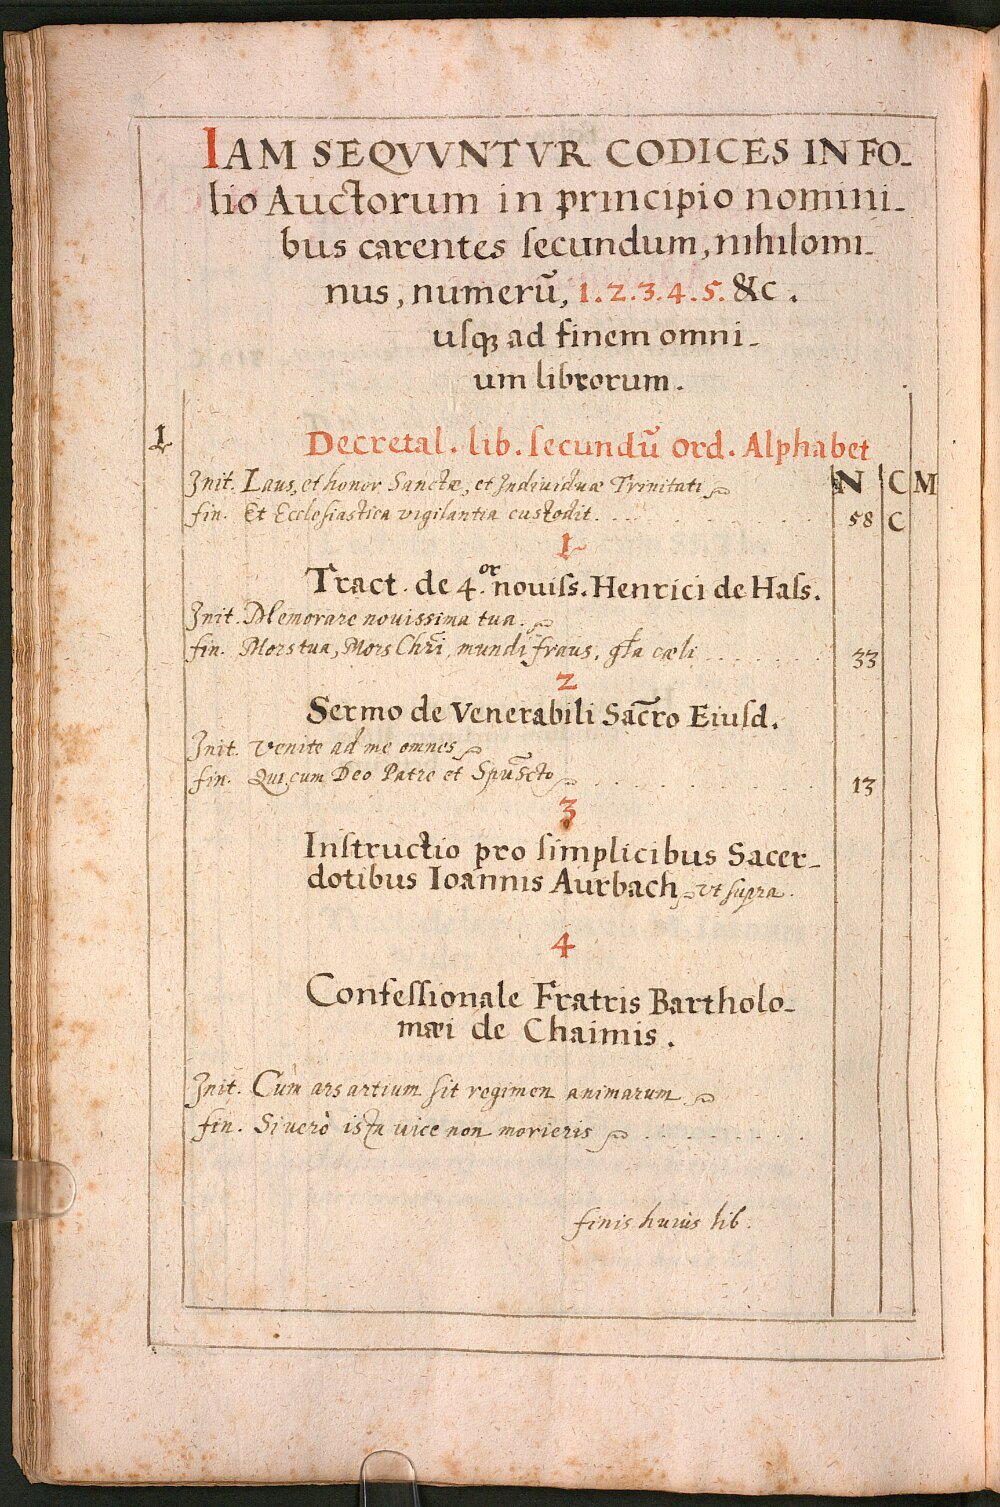 IAM SEQVVNTVR CODICES IN FO-
lio Auctorum in principio nomini-
bus carentes ſecundum, nihilomi-
nus, numerũ, 1.2.3.4.5. &c.
uſqꝫ ad finem omni-
um librorum.
1 Decretal. lib. ſecundũ ord. Alphabet
Init. Laus, et honor Sanctæ, et Indiuiduæ Trinitati N C M
fin. Et Eccleſiastica vigilantia custodit. 58 C
1
Tract. de 4.or nouiſs. Henrici de Haſs.
Init. Memorare nouissima tua.
fin. Mors tua, Mors Chr̃i, mundi fraus, gl̃a cæli 33
2
Sermo de Venerabili Sac̃ro Eiuſd.
Init. Venite ad me omnes
fin. Qui cum Deo Patre et Spũ Scto 13
3
Inſtructio pro ſimplicibus Sacer-
dotibus Ioannis Aurbach vt ſupra.
4
Confeſſionale Fratris Bartholo-
mæi de Chaimis.
Init. Cùm ars artium ſit regimen animarum
fin. Si uerò ista uice non morieris
finis huius lib.